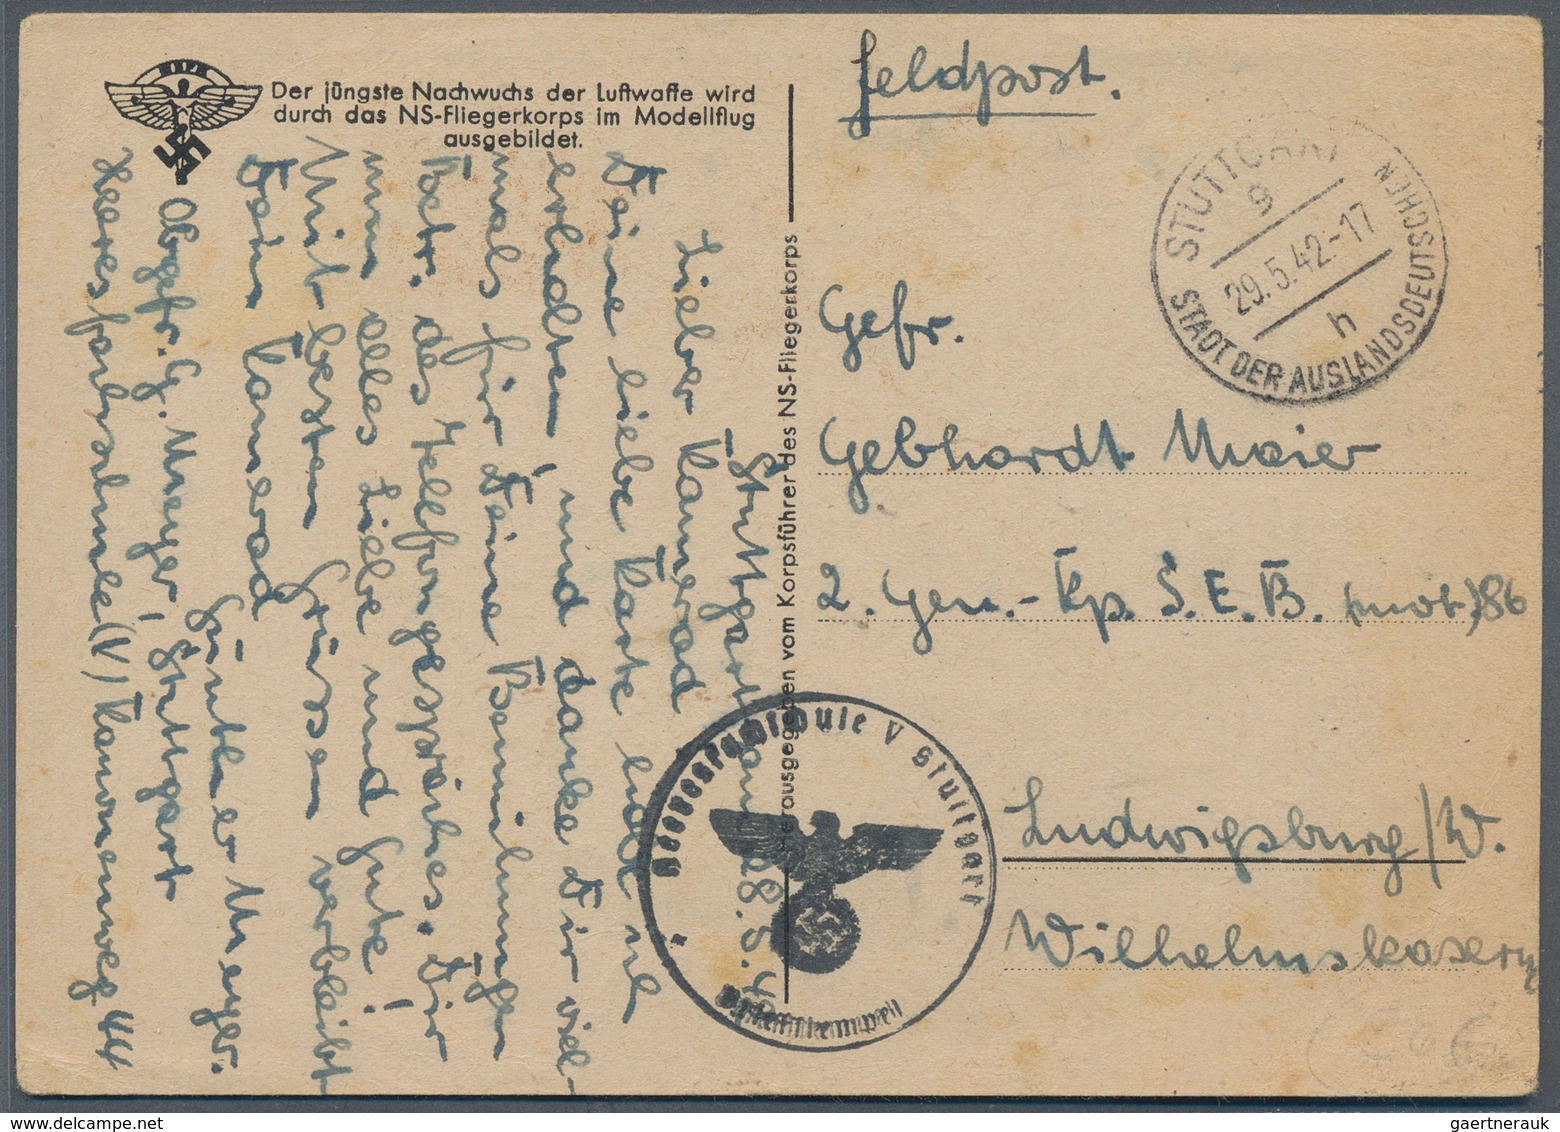 Der jüngste Nachwuchs der Luftwaffe wird
durch das NS-Fliegerkorps im Modellflug
ausgebildet.
Stuttgart, am 28.5.42
Lieber Kamerad
Deine liebe Karte habe
erhalten, und danke Dir viel-
mals für Deine Bemühungen
Betr. des Telefongespräches. Dir
nun alles Liebe und Gute!
Mit besten Grüssen verbleibt
Dein Kamerad
Günther Meyer.
Obgefr. G. Meyer, Stuttgart
Heeresfachschule (V) Kanonenweg 44
Herausgegeben vom Korpsführer des NS-Fliegerkorps
Feldpost.
STUTTGART
9
29.5.42.-17
h
STADT DER AUSLANDSDEUTSCHEN
Gefr.
Gebhardt Maier
2. Gen.-Kp. S.E.B. (mot.) 86
Ludwigsburg/W.
Wilhelmskaserne
Heeresfachschule V Stuttgart
Briefstempel
gaertnerauk